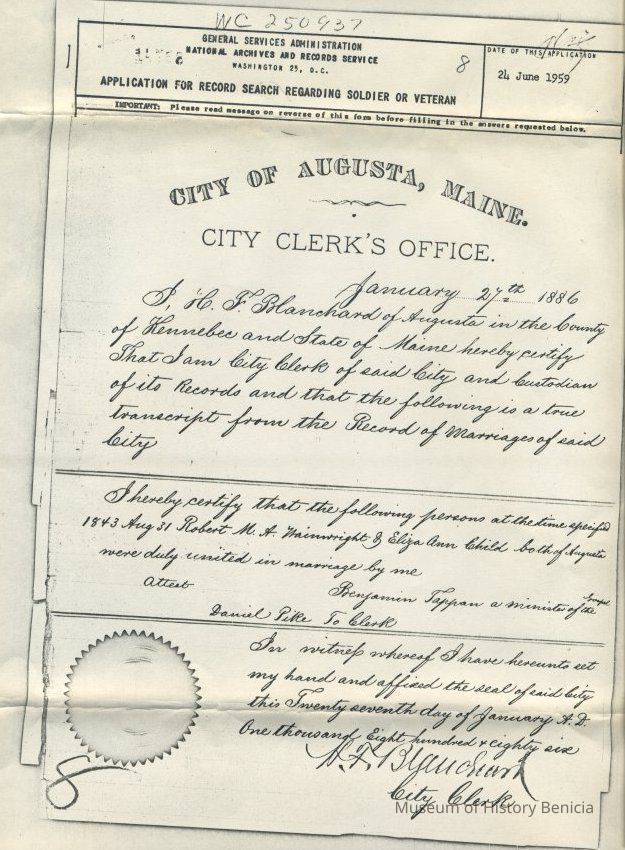 WC 250937
GENERAL SERVICES ADMINISTRATION
NATIONAL ARCHIVES AND RECORDS SERVICE
WASHINGTON 25, D.C.
8
DATE OF THIS APPLICATION
24 June 1959
APPLICATION FOR RECORD SEARCH REGARDING SOLDIER OR VETERAN
IMPORTANT: Please read message on reverse of this form before filling in the answers requested below.
CITY OF AUGUSTA, MAINE.
CITY CLERK'S OFFICE.
January 27th 1886
I, H. F. Blanchard of Augusta in the County
of Kennebec and State of Maine hereby certify
That I am City Clerk of said City and Custodian
of its Records and that the following is a true
transcript from the Record of Marriages of said
City
I hereby certify that the following persons at the time specified
1843 Aug 31 Robert M. A. Wainwright & Eliza Ann Child both of Augusta
were duly united in marriage by me
Benjamin Tappan a minister of the Gospel
Attest
Daniel Pike To Clerk
In witness whereof I have hereunto set
my hand and affixed the seal of said City
this Twenty seventh day of January A.D.
One thousand Eight hundred & eighty six
H. F. Blanchard
City Clerk
Museum of History Benicia